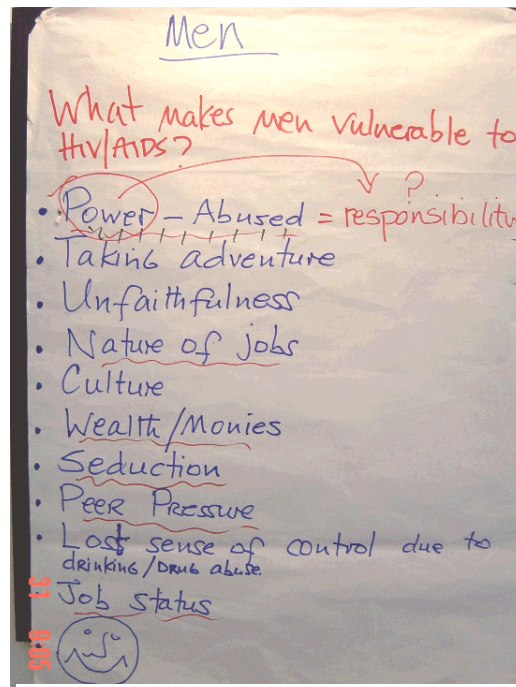 Men
What makes men vulnerable to
HIV/AIDS?
?
• Power - Abused = responsibility
• Taking adventure
• Unfaithfulness
• Nature of jobs
• Culture
• Wealth/Monies
• Seduction
• Peer Pressure
• Lost sense of control due to
drinking/Drug abuse.
Job status